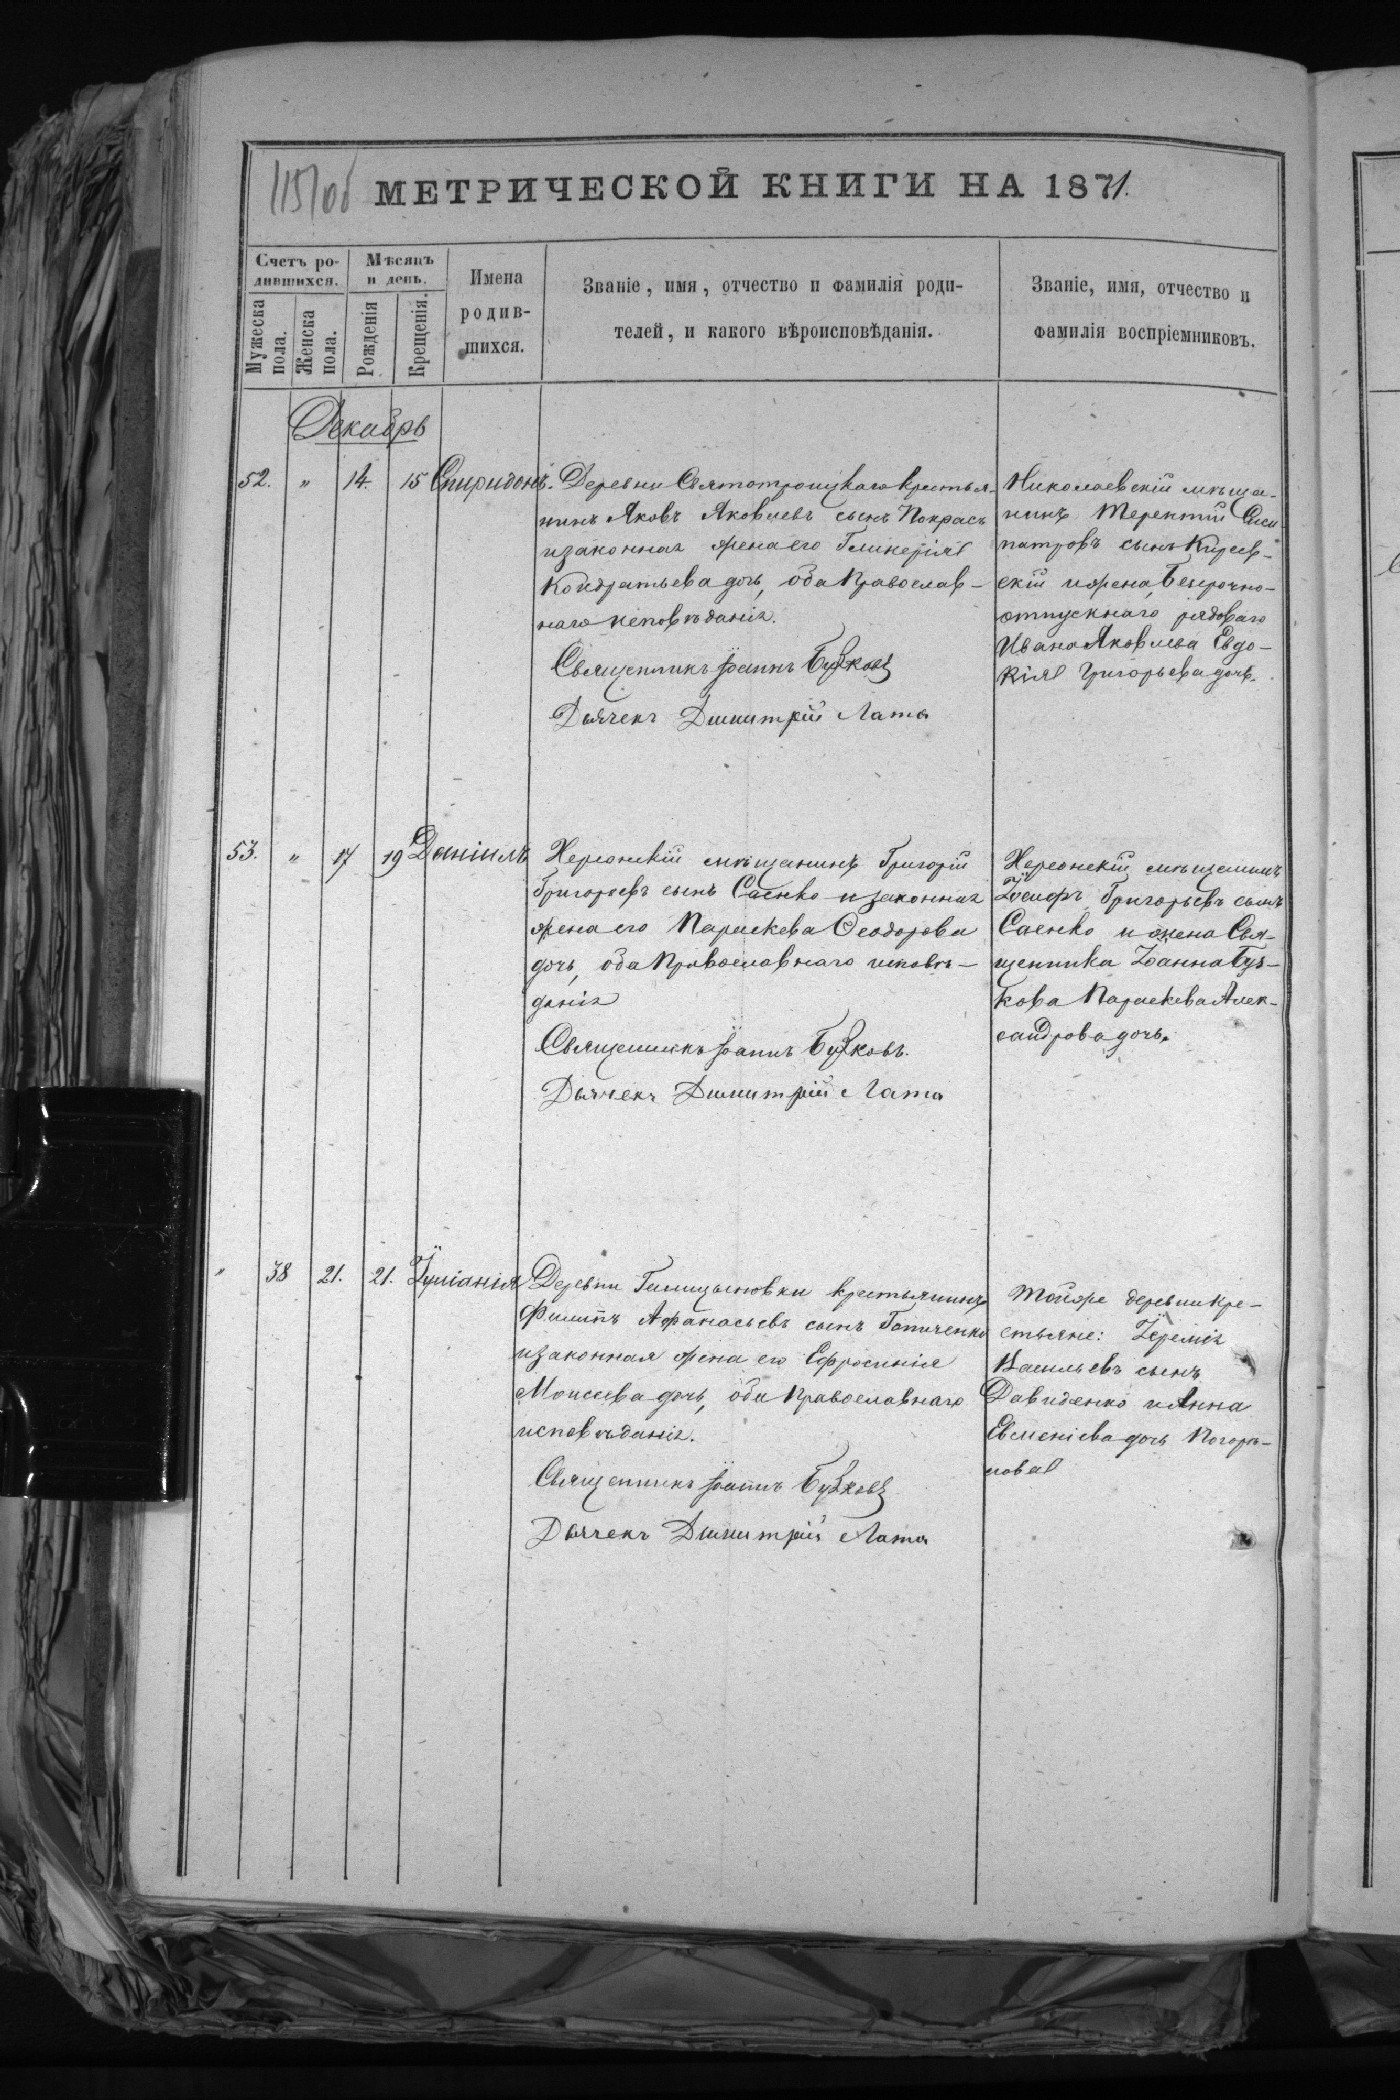 115 об
МЕТРИЧЕСКОЙ КНИГИ НА 1871.
Счетъ ро-
дившихся.
Мужеска пола.
Женска пола.
Мѣсяцъ
и день.
Рожденія
Крещенія.
Имена
родив-
шихся.
Званіе, имя, отчество и фамилія роди-
телей, и какого вѣроисповѣданія.
Званіе, имя, отчество и
фамилія воспріемниковъ.
Декабрь
52. " 14. 15 Спиридонъ.
Деревни Святотроицкаго крестья-
нинъ Яковъ Яковлевъ сынъ Покрасъ
и законная жена его Гликерія
Кондратьева дочь, оба Православ-
наго исповѣданія.
Священникъ Іоаннъ Бузковъ
Дьячекъ Димитрій Лата
Николаевскій мѣща-
нинъ Терентій Соси-
патровъ сынъ Киреев-
скій и жена Безсрочно-
отпускнаго рядоваго
Ивана Яковлева Евдо-
кія Григорьева дочь.
53. " 17 19 Даніилъ
Херсонскій мѣщанинъ Григорій
Григорьевъ сынъ Саенко и законная
жена его Параскева Ѳеодорова
дочь, оба Православнаго исповѣ-
данія
Священникъ Іоаннъ Бузковъ.
Дьячекъ Димитрій Лата
Херсонскій мѣщанинъ
Іосифъ Григорьевъ сынъ
Саенко и жена Свя-
щенника Іоанна Буз-
кова Параскева Алек-
сандрова дочь.
" 38 21. 21. Іуліанія
Деревни Галицыновки крестьянинъ
Филиппъ Афанасьевъ сынъ
и законная жена его Ефросинія
Моисеева дочь, оба Православнаго
исповѣданія.
Священникъ Іоаннъ Бузковъ
Дьячекъ Димитрій Лата
Тойже деревни кре-
стьяне: Іеремія
Васильевъ сынъ
Давиденко и Анна
Евменіева дочь Погорѣ-
лова